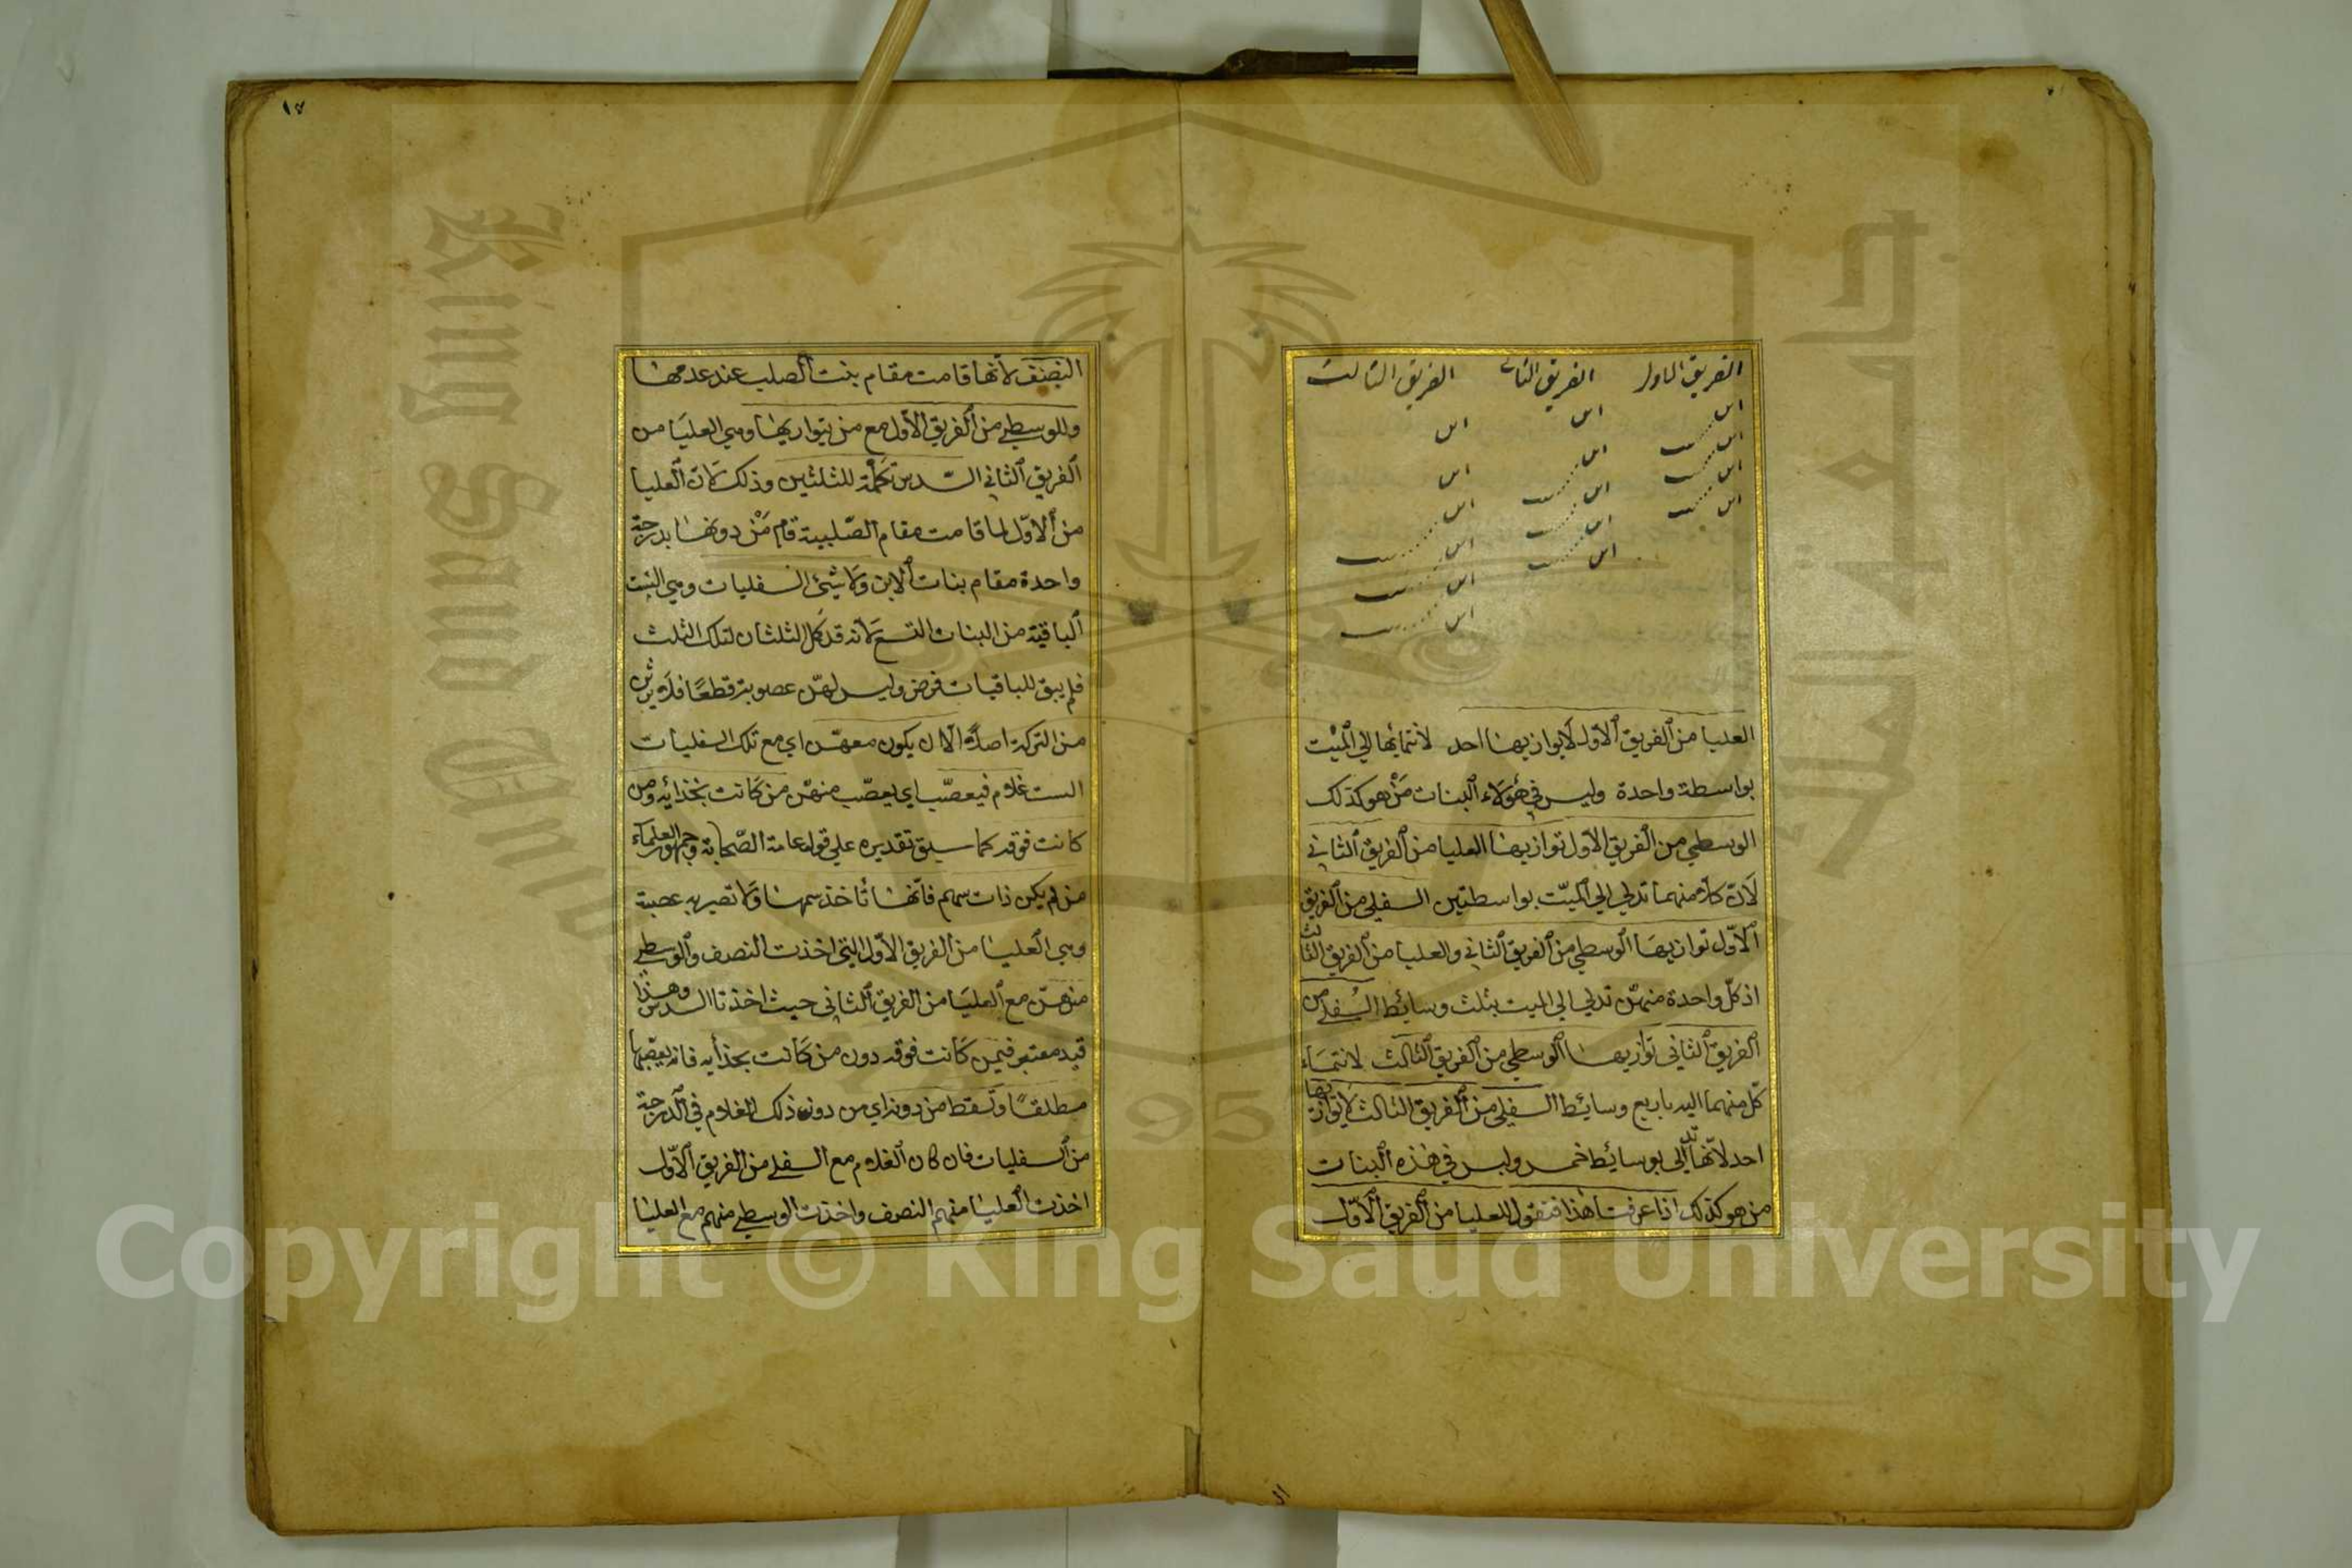 الفريق الاول الفريق الثاني الفريق الثالث
ابن ابن ابن
ابن بنت ابن ابن
ابن بنت ابن بنت ابن بنت
ابن بنت ابن بنت ابن بنت
ابن بنت ابن بنت
ابن بنت
العليا من الفريق الاول لا يوازيها احد لانتمائها الى الميت
بواسطة واحدة وليس في هؤلاء البنات من هو كذلك
الوسطي من الفريق الاول توازيها العليا من الفريق الثاني
لان كلا منهما تدلي الي الميت بواسطتين السفلي من الفريق
الاول توازيها الوسطي من الفريق الثاني والعليا من الفريق الثالث
اذ كل واحدة منهن تدلي الي الميت بثلث وسائط السفلي من
الفريق الثاني توازيها الوسطي من الفريق الثالث لانتماء
كل منهما اليه باربع وسائط السفلي من الفريق الثالث لا يوازيها
احد لانها تدلي بوسائط خمس وليس في هذه البنات
من هو كذلك اذا عرفت هذا فنقول للعليا من الفريق الاول
١٤
النصف لانها قامت مقام بنت الصلب عند عدمها
وللوسطي من الفريق الاول مع من يوازيها وهي العليا من
الفريق الثاني السدس تكملة للثلثين وذلك لان العليا
من الاول لما قامت مقام الصلبية قام من دونها بدرجة
واحدة مقام بنات الابن ولا شيئ للسفليات وهي الست
الباقية من البنات التسع لانه قد كمل الثلثان لتلك الثلث
فلم يبق للباقيات فرض وليس لهن عصوبة قطعا فلا يرثن
من التركة اصلا الا ان يكون معهن اي مع تلك السفليات
الست غلام فيعصب اي يعصب منهن من كانت بحذائه ومن
كانت فوقه كما سبق تقديره علي قول عامة الصحابة وجمهور العلماء
من لم يكن ذات سهم فانها تأخذ سهمها ولا تصير به عصبة
وهي العليا من الفريق الاول التي اخذت النصف والوسطي
منهن مع العليا من الفريق الثاني حيث اخذتا السدس وهذا
قيد معتبر فيمن كانت فوقه دون من كانت بحذائه فانه يعصبها
مطلقا وتسقط من دونه اي من دون ذلك الغلام في الدرجة
من السفليات فان كان الغلام مع السفلي من الفريق الاول
اخذت العليا منهم النصف واخذت الوسطي منهم مع العليا
King Saud University
1957
Copyright © King Saud University